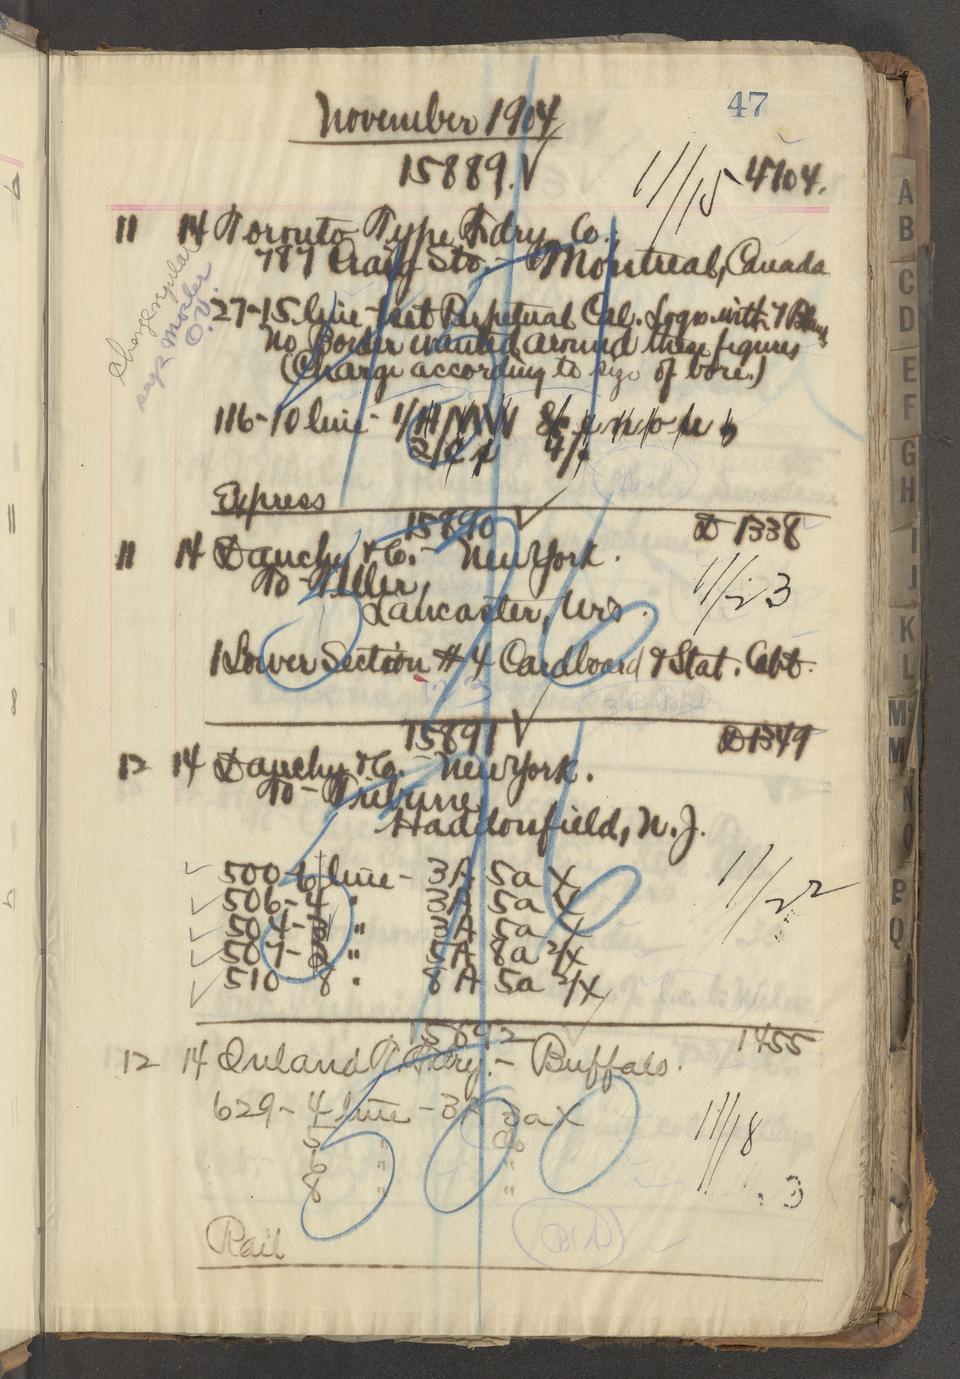 47
November 1904
15889. √ 11/15 4704.
11 14 Toronto Type Fdry Co.
787 Craig Sts. - Montreal, Canada
27-15 line - Perpetual Cal. Logos with 7
No Border wanted around these figures
(Charge according to size of bore.)
116-10 line -
Express
15890 √ D 1338
11 14 Dauchy & Co. - New York.
To - Teller,
Lancaster, Wis. 11/23
1 Lower Section # 4 Cardboard & Stat. Cabt.
15891 √ D 1349
12 14 Dauchy & Co. - New York.
To - Tribune
Haddonfield, N. J.
500 - 6 line - 3A 5a X 11/22
506 - 4 " 3A 5a X
504 - " 3A 5a X
507 - " 5A 8a 2/X
510 8 " 8A 5a 2/X
15892 1455
12 14 Inland T. Fdry. - Buffalo.
629 - 4 line - 3A 3a X 11/18
5 " do
6 " "
8 " "
3
Rail
A
B
C
D
E
F
G
H
I
J
K
L
M
N
O
P
Q